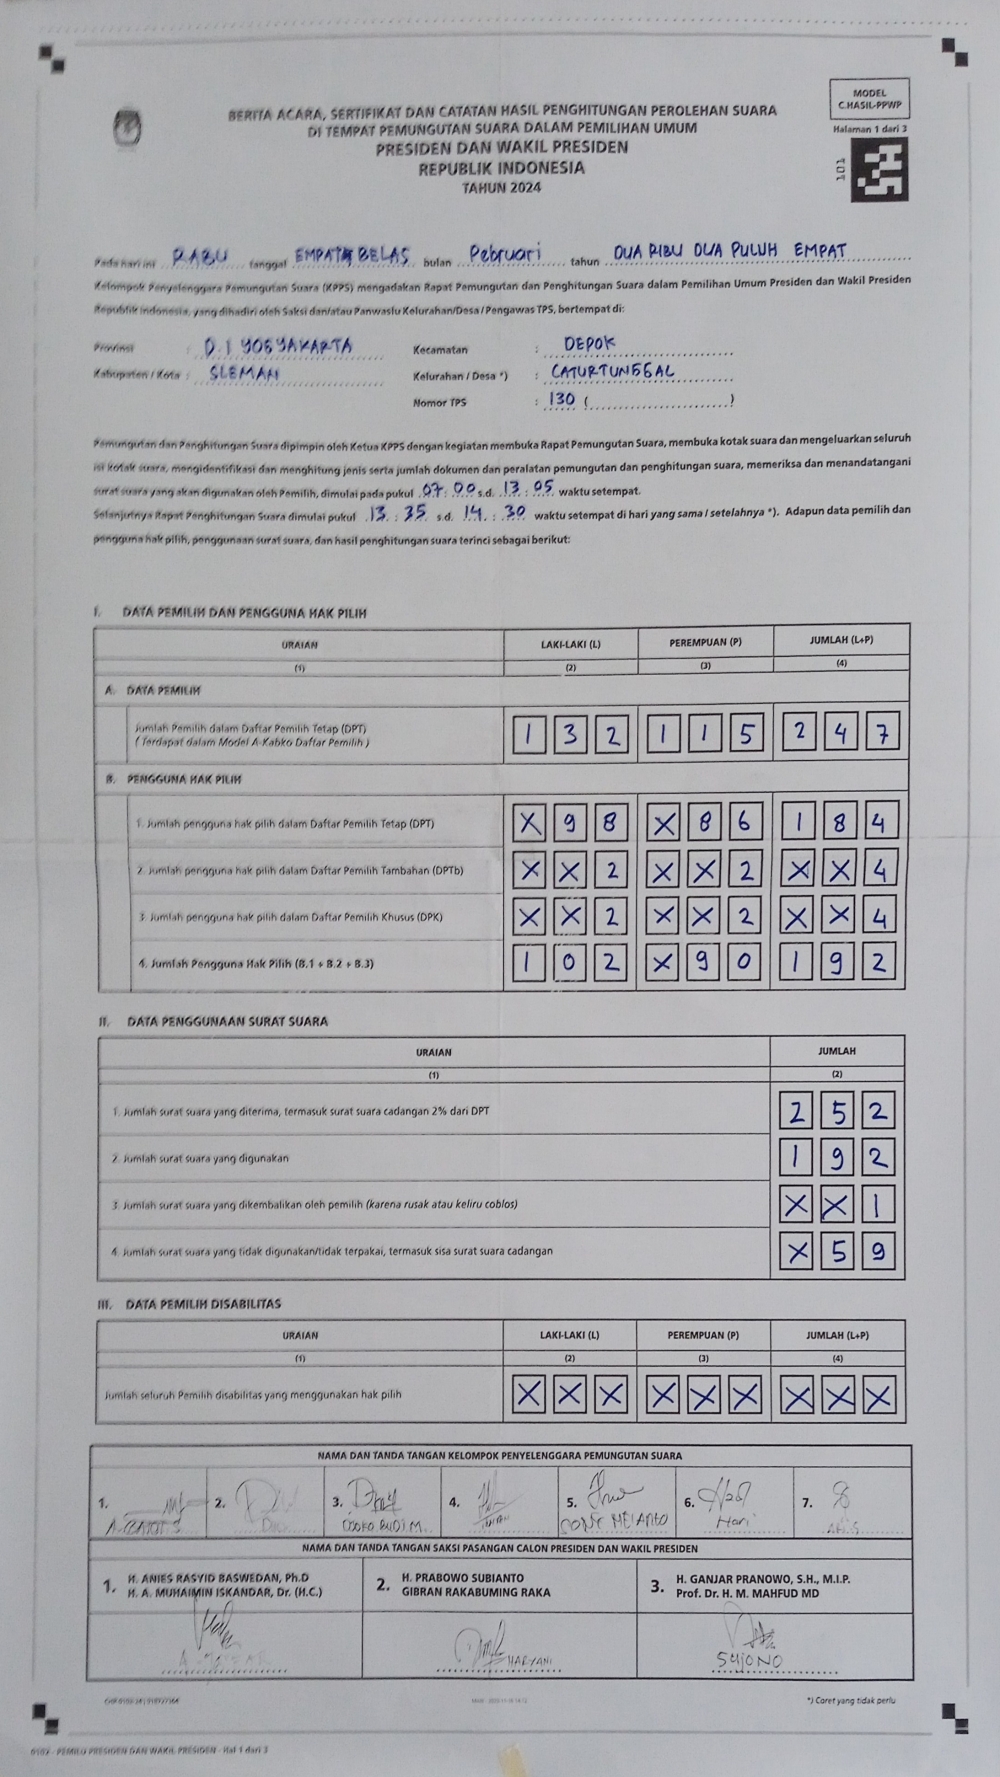 MODEL
C.HASIL-PPWP
Halaman 1 dari 3
101
BERITA ACARA, SERTIFIKAT DAN CATATAN HASIL PENGHITUNGAN PEROLEHAN SUARA
DI TEMPAT PEMUNGUTAN SUARA DALAM PEMILIHAN UMUM
PRESIDEN DAN WAKIL PRESIDEN
REPUBLIK INDONESIA
TAHUN 2024
Pada hari ini RABU tanggal EMPAT BELAS bulan Pebruari tahun DUA RIBU DUA PULUH EMPAT
Kelompok Penyelenggara Pemungutan Suara (KPPS) mengadakan Rapat Pemungutan dan Penghitungan Suara dalam Pemilihan Umum Presiden dan Wakil Presiden
Republik Indonesia, yang dihadiri oleh Saksi dan/atau Panwaslu Kelurahan/Desa/Pengawas TPS, bertempat di:
Provinsi : D.I YOGYAKARTA Kecamatan : DEPOK
Kabupaten / Kota : SLEMAN Kelurahan / Desa *) : CATURTUNGGAL
Nomor TPS : 130 ( )
Pemungutan dan Penghitungan Suara dipimpin oleh Ketua KPPS dengan kegiatan membuka Rapat Pemungutan Suara, membuka kotak suara dan mengeluarkan seluruh
isi kotak suara, mengidentifikasi dan menghitung jenis serta jumlah dokumen dan peralatan pemungutan dan penghitungan suara, memeriksa dan menandatangani
surat suara yang akan digunakan oleh Pemilih, dimulai pada pukul 07 : 00 s.d. 13 : 05 waktu setempat.
Selanjutnya Rapat Penghitungan Suara dimulai pukul 13 : 35 s.d. 14 : 30 waktu setempat di hari yang sama / setelahnya *). Adapun data pemilih dan
pengguna hak pilih, penggunaan surat suara, dan hasil penghitungan suara terinci sebagai berikut:
I. DATA PEMILIH DAN PENGGUNA HAK PILIH
URAIAN LAKI-LAKI (L) PEREMPUAN (P) JUMLAH (L+P)
(1) (2) (3) (4)
A. DATA PEMILIH
Jumlah Pemilih dalam Daftar Pemilih Tetap (DPT)
( Terdapat dalam Model A-Kabko Daftar Pemilih ) 1 3 2 1 1 5 2 4 7
B. PENGGUNA HAK PILIH
1. Jumlah pengguna hak pilih dalam Daftar Pemilih Tetap (DPT) X 9 8 X 8 6 1 8 4
2. Jumlah pengguna hak pilih dalam Daftar Pemilih Tambahan (DPTb) X X 2 X X 2 X X 4
3. Jumlah pengguna hak pilih dalam Daftar Pemilih Khusus (DPK) X X 2 X X 2 X X 4
4. Jumlah Pengguna Hak Pilih (B.1 + B.2 + B.3) 1 0 2 X 9 0 1 9 2
II. DATA PENGGUNAAN SURAT SUARA
URAIAN JUMLAH
(1) (2)
1. Jumlah surat suara yang diterima, termasuk surat suara cadangan 2% dari DPT 2 5 2
2. Jumlah surat suara yang digunakan 1 9 2
3. Jumlah surat suara yang dikembalikan oleh pemilih (karena rusak atau keliru coblos) X X 1
4. Jumlah surat suara yang tidak digunakan/tidak terpakai, termasuk sisa surat suara cadangan X 5 9
III. DATA PEMILIH DISABILITAS
URAIAN LAKI-LAKI (L) PEREMPUAN (P) JUMLAH (L+P)
(1) (2) (3) (4)
Jumlah seluruh Pemilih disabilitas yang menggunakan hak pilih X X X X X X X X X
NAMA DAN TANDA TANGAN KELOMPOK PENYELENGGARA PEMUNGUTAN SUARA
1. 2. 3. 4. 5. 6. 7.
BUDI M. Hari
NAMA DAN TANDA TANGAN SAKSI PASANGAN CALON PRESIDEN DAN WAKIL PRESIDEN
1. H. ANIES RASYID BASWEDAN, Ph.D
H. A. MUHAIMIN ISKANDAR, Dr. (H.C.)
2. H. PRABOWO SUBIANTO
GIBRAN RAKABUMING RAKA
3. H. GANJAR PRANOWO, S.H., M.I.P.
Prof. Dr. H. M. MAHFUD MD
HARYANI SUJONO
*) Coret yang tidak perlu
0103 - PEMILU PRESIDEN DAN WAKIL PRESIDEN - Hal 1 dari 3